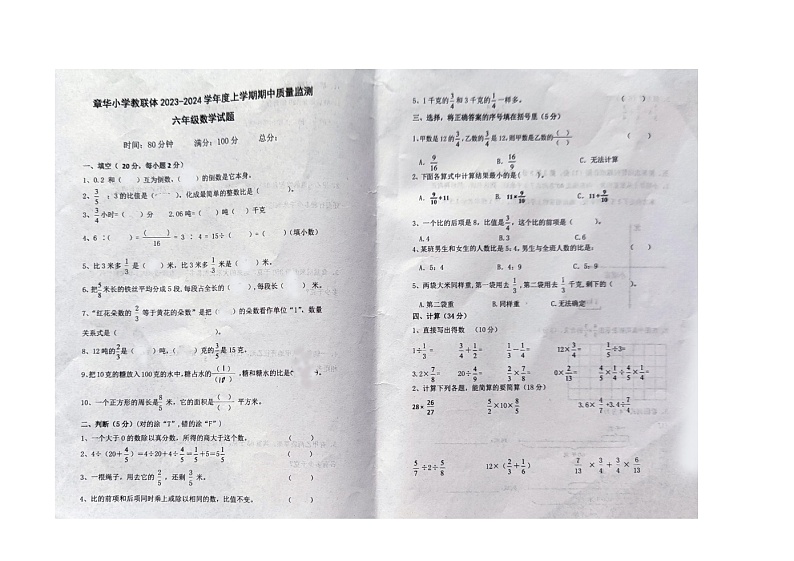 章华小学教联体 2023-2024 学年度上学期期中质量监测
六年级数学试题
时间：80分钟 满分：100分 总分：
一、填空（ 20分，每小题2分）
1、0.2 和（ ）互为倒数，（ ）的倒数是它本身。
2、3/5 ：3的比值是（ ），化成最简单的整数比是（ ）。
3、3/4小时=（ ）分 2.06吨=（ ）吨（ ）千克
4、6 ：（ ）=（ ）/16 = 3 ：4 = 15÷（ ）=（ ）（填小数）
5、比3米多 1/3 是（ ）米，比3米多 1/3 米是（ ）米。
6、把5/8米长的铁丝平均分成5段，每段占全长的（ ），每段长（ ）米。
7、“红花朵数的 2/3 等于黄花的朵数”是把（ ）的朵数看作单位“1”，数量
关系式是（ ）。
8、12吨的2/3是（ ）吨，（ ）克的3/5是15克。
9、把10克的糖放入100克的水中，糖占水的 ，糖和糖水的比是
10、一个正方形的周长是8/5 米，它的面积是（ ）/（ ）平方米。
二、判断（5分）(对的涂“T”，错的涂“F”)
1、一个大于0的数除以真分数，所得的商大于这个数。 （ ）
2、4÷（20+4/5）=4÷20+4÷4/5=1/5+5=5 1/5 （ ）
3、一根绳子，用去它的 2/5 ，还剩 3/5 米。 （ ）
4、比的前项和后项同时乘上或除以相同的数，比值不变。 （ ）
5、1千克的3/4和3千克的1/4一样多。 （ ）
三、选择，将正确答案的序号填在括号里（5分）
1、甲数是12的3/4，乙数的3/4是12，则甲数是乙数的（ ）/（ ）
A. 9/16 B. 16/9 C. 无法计算
2、下面各算式中计算结果最小的是（ ）。
A. 9/10÷11 B. 11×9/10 C. 11÷9/10
3、一个比的后项是8，比值是3/4，这个比的前项是（ ）。
A.4 B.3 C.6
4、某班男生和女生的人数比是5：4，男生与全班人数的比是： （ ）
A、5：4 B、4：9 C、5：9
5、两袋大米同样重，第一袋用去 1/3，第二袋用去 1/3 千克，剩下的（ ）。
A.第二袋重 B.同样重 C.无法确定
四、计算（34分）
1、直接写出得数 （10分）
1÷1/3= 3/4÷1/2= 1/3-1/4= 12×3/4= 1/3÷3=
3.2×7/8= 20÷4/9= 2/3×7/8= 0×2/13= 4/5×1/4÷4/5×1/4=
2、计算下列各题，能简算的要简算(18分)
28×26/27 5/2×10×8/5 3.6×4/7+3.4÷7/4
5/7÷2÷5/8 12×（2/3+1/6） 7/13×3/4+3/4×6/13